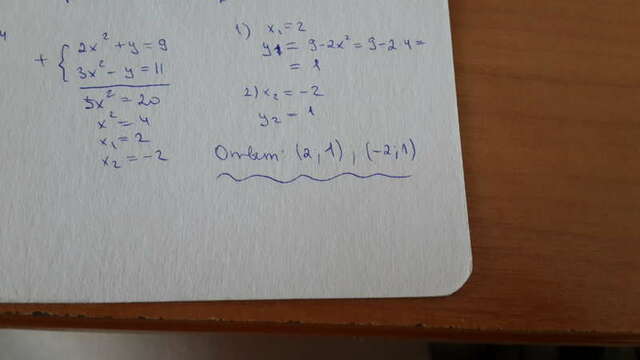 + { 2x² + y = 9
3x² - y = 11
5x² = 20
x² = 4
x₁ = 2
x₂ = -2
1) x₁ = 2
y₁ = 9 - 2x² = 9 - 2·4 =
= 1
2) x₂ = -2
y₂ = 1
Ответ: (2, 1), (-2; 1)